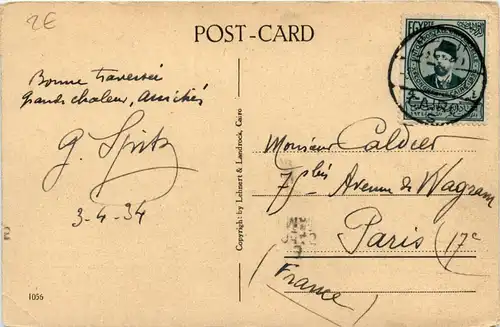 2€
POST-CARD
EGYPTE
CAIRO
Bonne traversée
Grands chaleur, Amitiés
3-4-34
Copyright by Lehnert & Landrock, Cairo
Monsieur Caldier
7 plis Avenue de Wagram
Paris (17e
(France)
1056